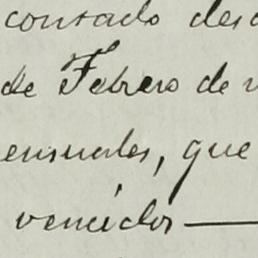 contado des
de Febrero de
ensuales, que
vencidos —